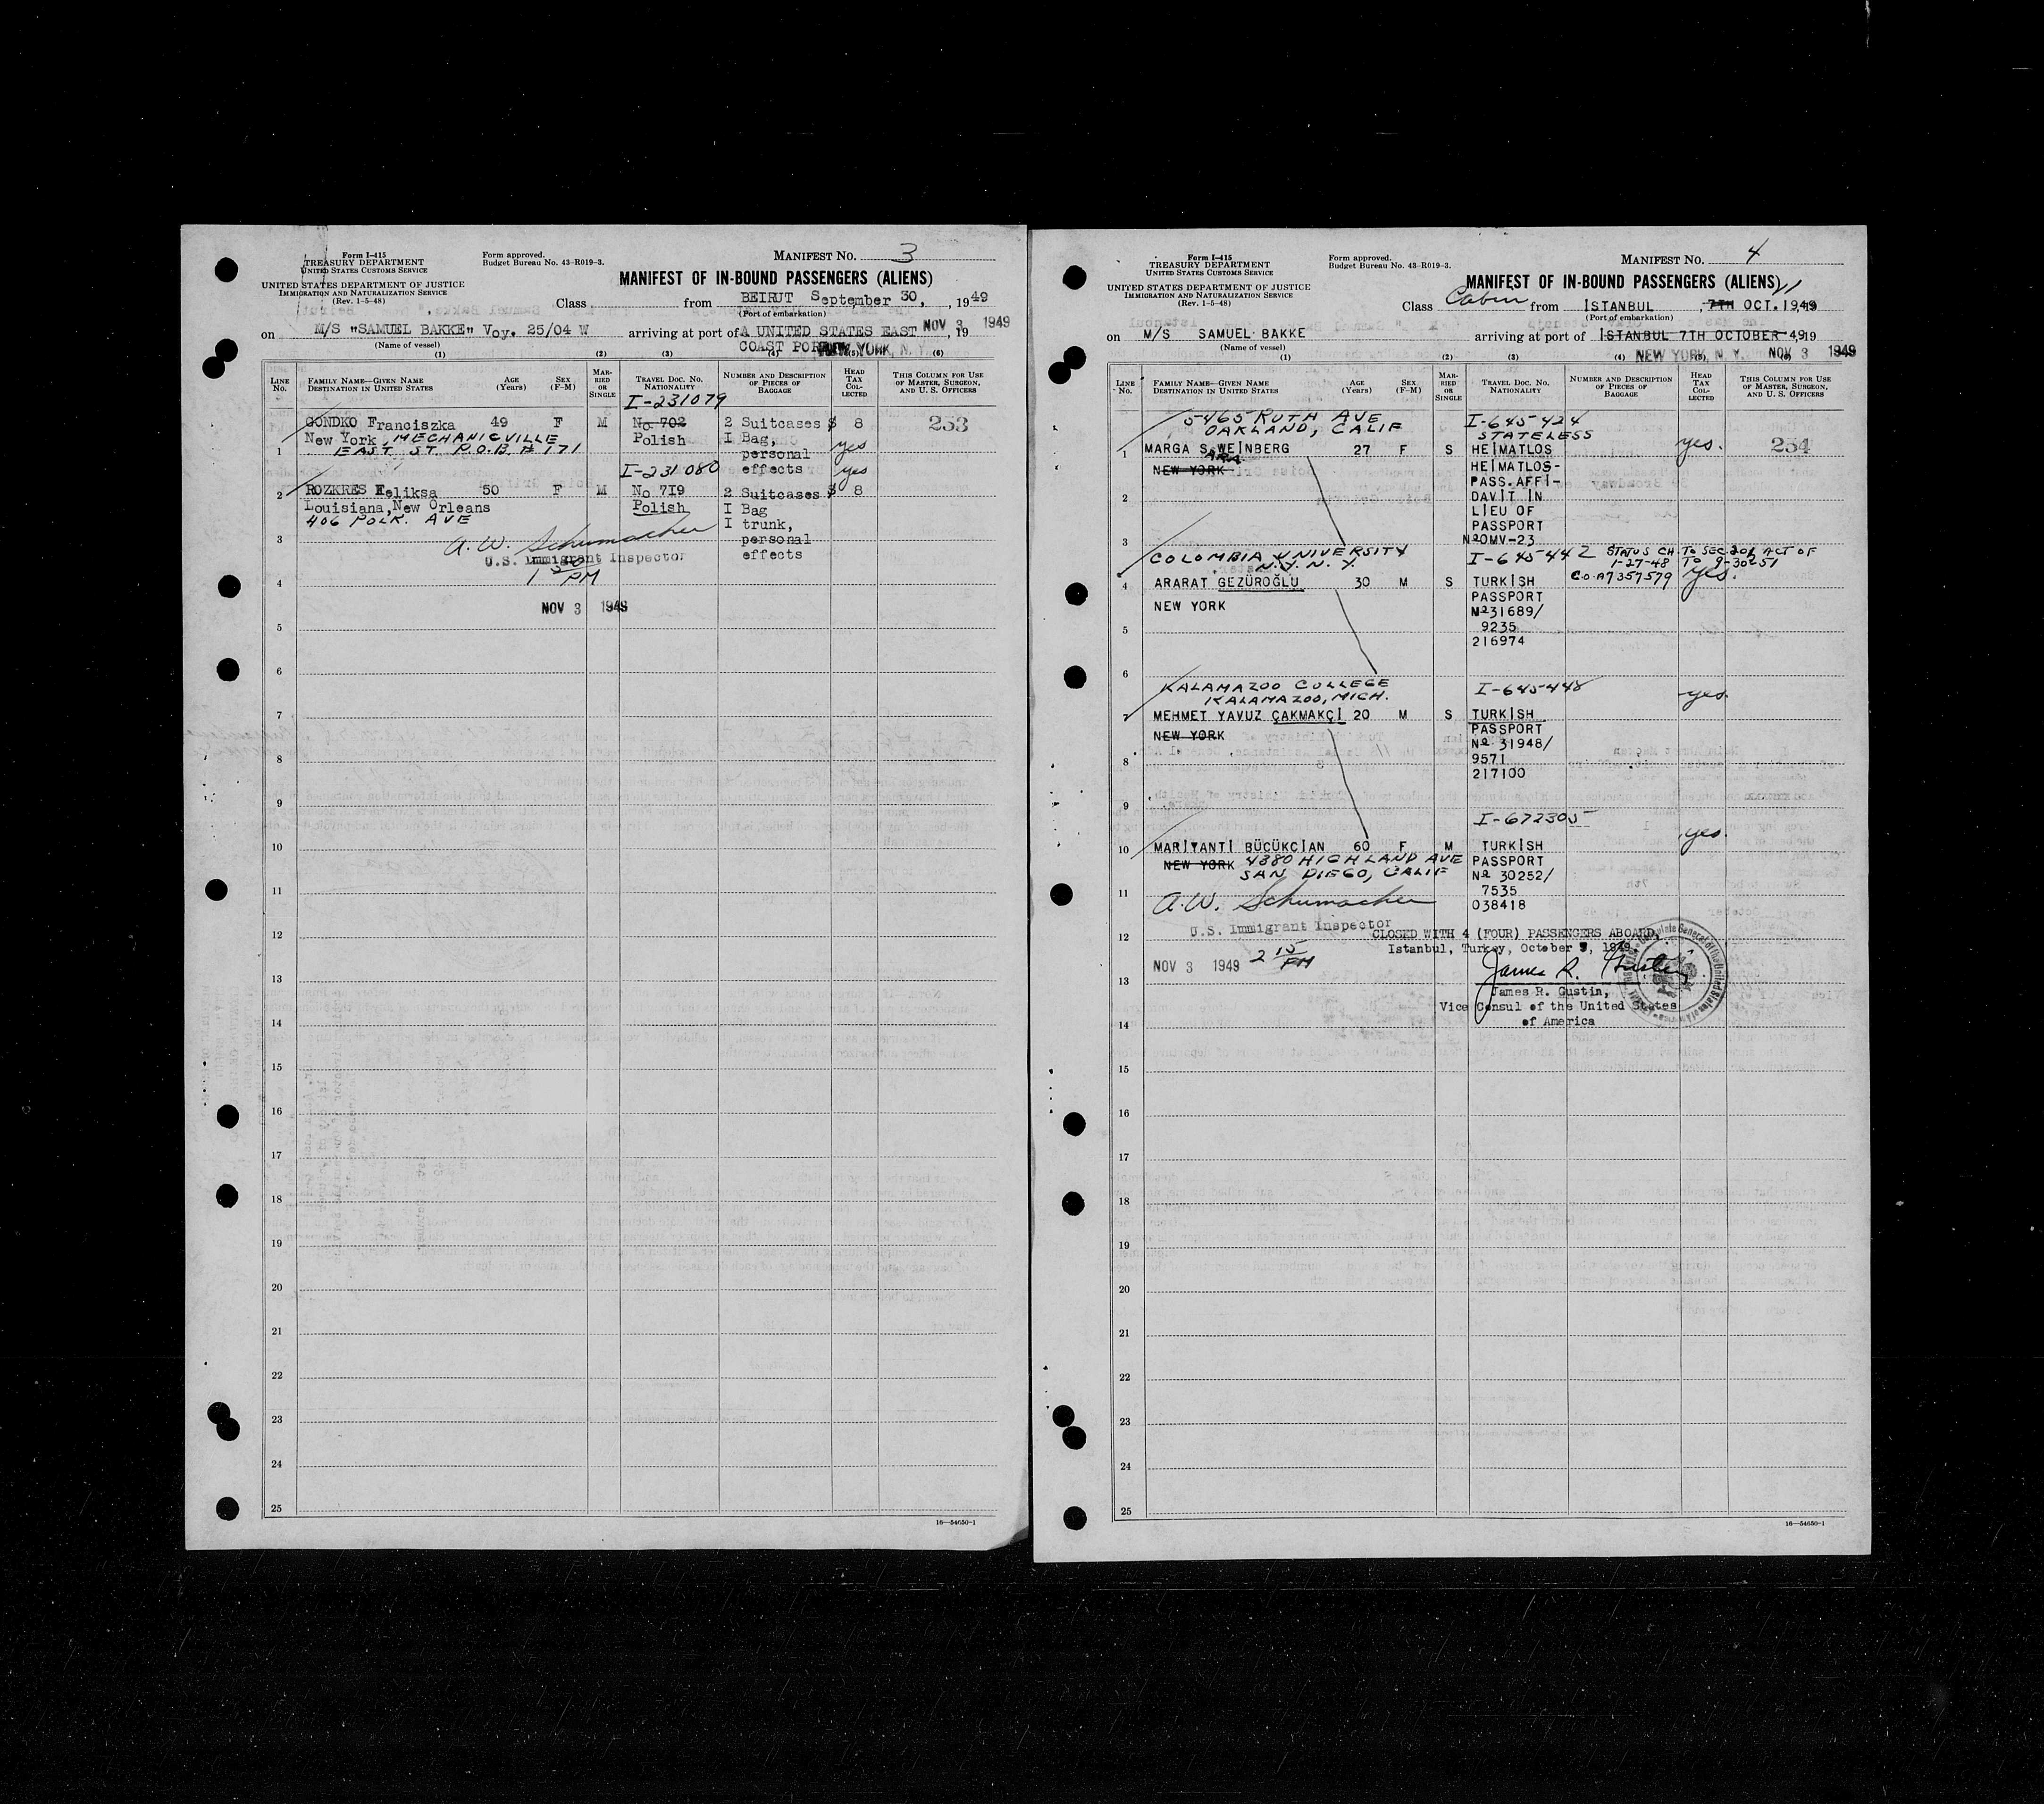 Form I-415
TREASURY DEPARTMENT
UNITED STATES CUSTOMS SERVICE
UNITED STATES DEPARTMENT OF JUSTICE
IMMIGRATION AND NATURALIZATION SERVICE
(Rev. 1-5-48)
Form approved.
Budget Bureau No. 43-R019-3.
MANIFEST No. 3
MANIFEST OF IN-BOUND PASSENGERS (ALIENS)
Class from BEIRUT September 30, , 1949
(Port of embarkation)
on M/S "SAMUEL BAKKE" Voy. 25/04 W arriving at port of A UNITED STATES EAST NOV 3 1949 , 19
(Name of vessel) COAST PORT NEW YORK, N. Y.
(1) (2) (3) (4) (5) (6)
LINE No. FAMILY NAME—GIVEN NAME DESTINATION IN UNITED STATES AGE (Years) SEX (F-M) MARRIED OR SINGLE TRAVEL DOC. No. NATIONALITY NUMBER AND DESCRIPTION OF PIECES OF BAGGAGE HEAD TAX COLLECTED THIS COLUMN FOR USE OF MASTER, SURGEON, AND U. S. OFFICERS
I-231079
GONDKO Franciszka 49 F M No 702 2 Suitcases $ 8 253
New York, MECHANICVILLE Polish I Bag, yes
1 EAST ST P.O.B. # 171 personal
I-231080 effects yes
2 ROZKRES Feliksa 50 F M No 719 2 Suitcases $ 8
Louisiana, New Orleans Polish I Bag
406 POLK. AVE I trunk,
3 A. W. Schumacher personal
U.S. Immigrant Inspector effects
4 1 30 PM
NOV 3 1949
5
6
7
8
9
10
11
12
13
14
15
16
17
18
19
20
21
22
23
24
25
16—54650-1
Form I-415
TREASURY DEPARTMENT
UNITED STATES CUSTOMS SERVICE
UNITED STATES DEPARTMENT OF JUSTICE
IMMIGRATION AND NATURALIZATION SERVICE
(Rev. 1-5-48)
Form approved.
Budget Bureau No. 43-R019-3.
MANIFEST No. 4
MANIFEST OF IN-BOUND PASSENGERS (ALIENS)
Class Cabin from İSTANBUL , 7TH OCT. 1949 11
(Port of embarkation)
on M/S SAMUEL BAKKE arriving at port of İSTANBUL 7TH OCTOBER 49, 19
(Name of vessel) NEW YORK, N. Y. NOV 3 1949
(1) (2) (3) (4) (5) (6)
LINE No. FAMILY NAME—GIVEN NAME DESTINATION IN UNITED STATES AGE (Years) SEX (F-M) MARRIED OR SINGLE TRAVEL DOC. No. NATIONALITY NUMBER AND DESCRIPTION OF PIECES OF BAGGAGE HEAD TAX COLLECTED THIS COLUMN FOR USE OF MASTER, SURGEON, AND U. S. OFFICERS
5465 RUTH AVE I-645424
OAKLAND, CALIF STATELESS
1 MARGA S. WEİNBERG 27 F S HEİMATLOS yes. 254
ARA
NEW YORK HEİMATLOS-
PASS.AFFİ-
2 DAVİT İN
LİEU OF
PASSPORT
3 No OMV-23
COLOMBIA UNIVERSITY I-645442 STATUS CH. TO SEC. 201 ACT OF
N.Y. N.Y. 1-27-48 TO 9-30-51
4 ARARAT GEZÜROĞLU 30 M S TURKİSH C.O. A7357579 yes.
PASSPORT
NEW YORK No 31689/
5 9235
216974
6
KALAMAZOO COLLEGE I-645448 yes.
KALAMAZOO, MICH.
7 MEHMET YAVUZ ÇAKMAKÇİ 20 M S TURKİSH
PASSPORT
NEW YORK No 31948/
8 9571
217100
9
I-672305
yes.
10 MARİYANTİ BÜCÜKCİAN 60 F M TURKİSH
NEW YORK 4380 HIGHLAND AVE PASSPORT
SAN DIEGO, CALIF No 30252/
11 7535
A. W. Schumacher 038418
U.S. Immigrant Inspector
12 CLOSED WITH 4 (FOUR) PASSENGERS ABOARD,
Istanbul, Turkey, October 7, 1949.
NOV 3 1949 2 15 PM
13 James R. Gustin
James R. Gustin,
Vice Consul of the United States
14 of America
15
16
17
18
19
20
21
22
23
24
25
16—54650-1